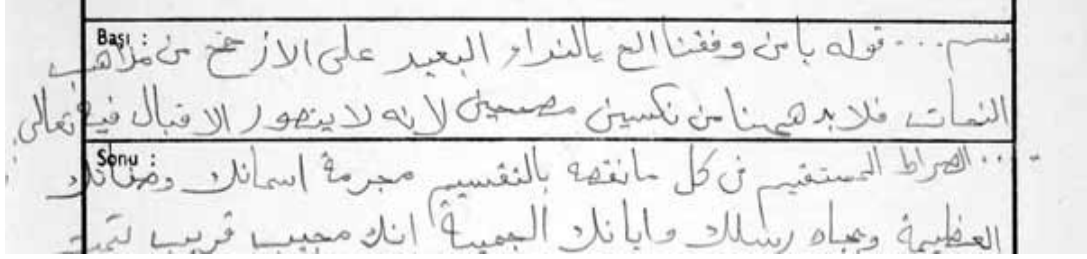 Başı :
بسم... قوله يا من وفقنا الخ يالنداء البعيد على الارجح من مذاهب
النحات فلا بد ههنا من نكتتين مصححين لانه لا يتصور الاقبال فيه تعالى
Sonu :
... الصراط المستقيم فى كل مانقصه بالتفسيم بحرمة اسمائك وصفاتك
العظيمة وبجاه رسلك واياتك الجميلة انك مجيب قريب تمت